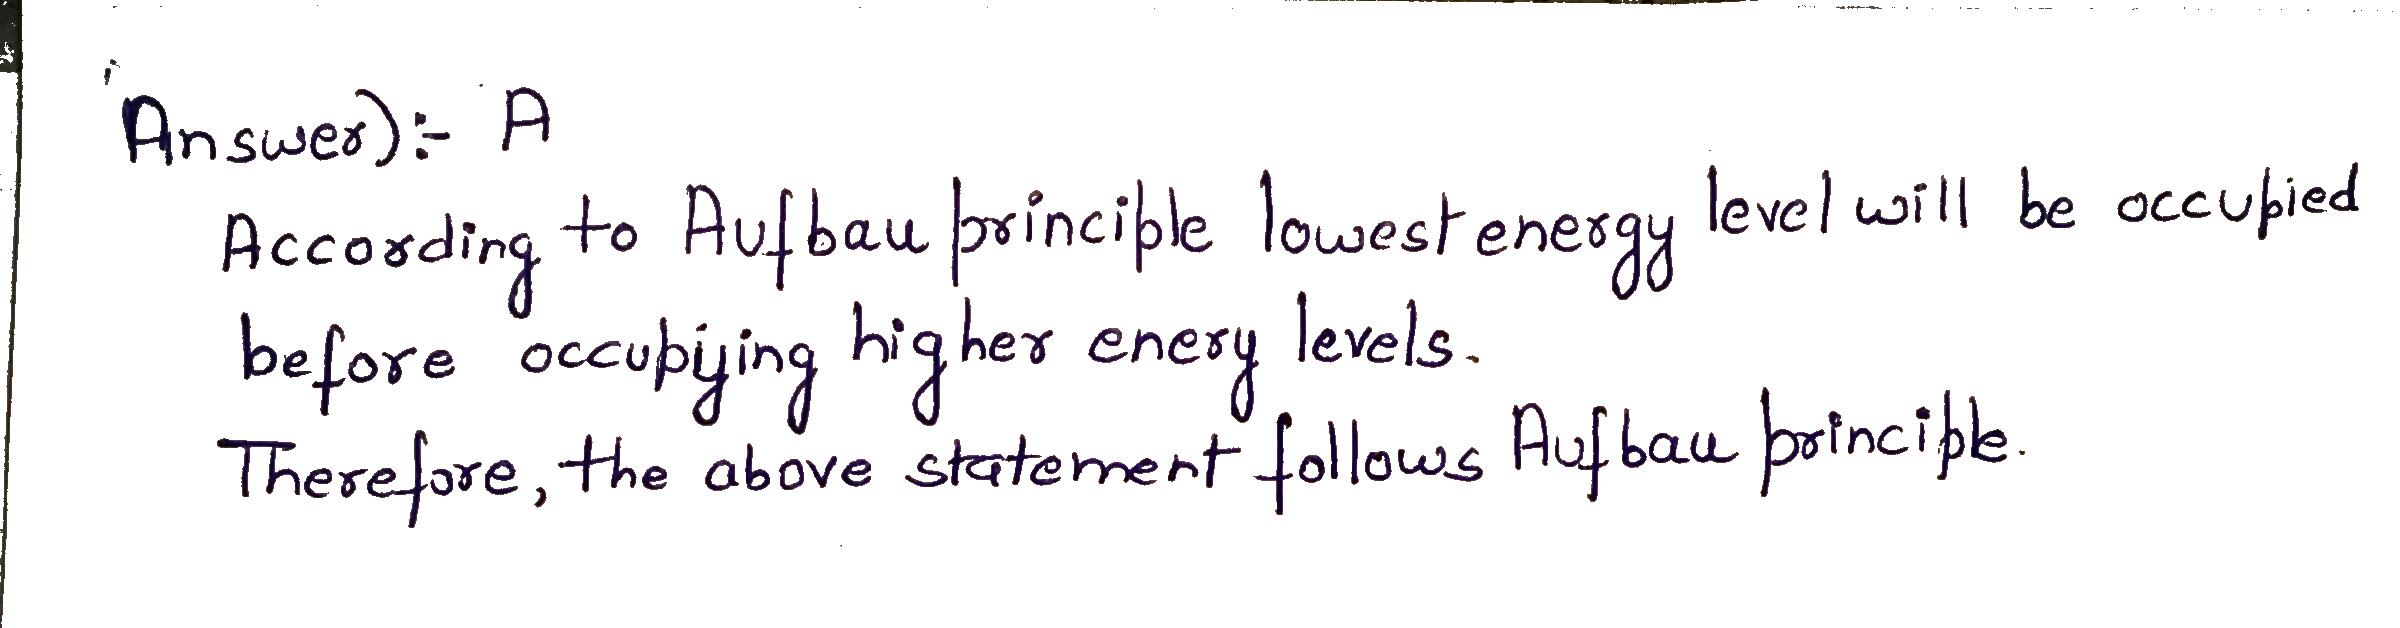 Answer):- A
According to Aufbau principle lowest energy level will be occupied
before occupiying higher enery levels.
Therefore, the above statement follows Aufbau principle.